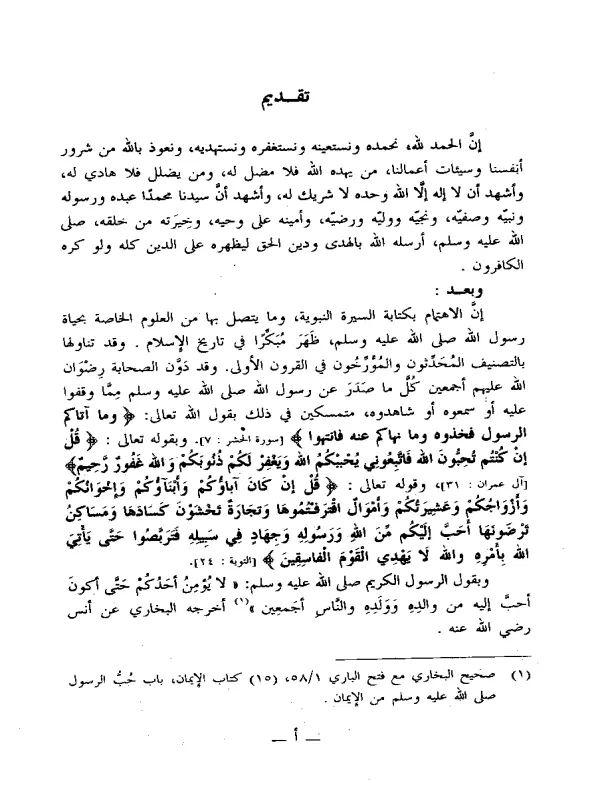 تقـديم
إنَّ الحمد لله، نحمده ونستعينه ونستغفره ونستهديه، ونعوذ بالله من شرور
أنفسنا وسيئات أعمالنا، من يهده الله فلا مضل له، ومن يضلل فلا هادي له،
وأشهد أن لا إله إلَّا الله وحده لا شريك له، وأشهد أنَّ سيدنا محمدًا عبده ورسوله
ونبيّه وصفيّه، ونجيّه ووليّه ورضيّه، وأمينه على وحيه، وخِيرَته من خلقه، صلى
الله عليه وسلم، أرسله الله بالهدى ودين الحق ليظهره على الدين كله ولو كره
الكافرون .
وبعـد :
إنَّ الاهتمام بكتابة السيرة النبوية، وما يتصل بها من العلوم الخاصة بحياة
رسول الله صلى الله عليه وسلم، ظَهَرَ مُبَكِّرًا في تاريخ الإسلام . وقد تناولها
بالتصنيف المُحَدِّثون والمُؤَرِّخُون في القرون الأولى. وقد دَوَّن الصحابة رِضْوَان
الله عليهم أجمعين كُلَّ ما صَدَرَ عن رسول الله صلى الله عليه وسلم مِمَّا وقفوا
عليه أو سمعوه أو شاهدوه، متمسكين في ذلك بقول الله تعالى: ﴿ وما آتاكم
الرسول فخذوه وما نهاكم عنه فانتهوا ﴾ [سورة الحشر : ٧]. وبقوله تعالى : ﴿ قُلْ
إنْ كُنْتُم تُحِبُّونَ الله فَاتَّبِعُوني يُحْبِبْكُمُ الله وَيَغْفِرْ لَكُمْ ذُنُوبَكُمْ وَالله غَفُورٌ رَحِيمٌ﴾
[آل عمران : ٣١]، وقوله تعالى : ﴿ قُلْ إنْ كَانَ آباؤُكُمْ وَأَبْنَاؤُكُمْ وَإِخْوَانُكُمْ
وَأَزْوَاجُكُمْ وَعَشِيرَتُكُمْ وَأَمْوَالٌ اقْتَرَفْتُمُوهَا وَتِجَارَةٌ تَخْشَوْنَ كَسَادَهَا وَمَسَاكِنُ
تَرْضَوْنَهَا أَحَبَّ إلَيْكُمْ مِّنَ اللهِ وَرَسُولِهِ وَجِهَادٍ فِي سَبِيلِهِ فَتَرَبَّصُوا حَتَّى يَأْتِيَ
الله بِأَمْرِهِ والله لَا يَهْدِي الْقَوْمَ الْفَاسِقِينَ ﴾ [التوبة : ٢٤].
وبقول الرسول الكريم صلى الله عليه وسلم: « لا يُؤمِنُ أحَدُكُمْ حَتَّى أكونَ
أحبَّ إليه من والدِهِ وَوَلَدِهِ والنَّاسِ أَجمَعِين »(١) أخرجه البخاري عن أنس
رضي الله عنه .
(١) صحيح البخاري مع فتح الباري ٥٨/١، (١٥) كتاب الإيمان، باب حُبُّ الرسول
صلى الله عليه وسلم من الإيمان .
— أ —